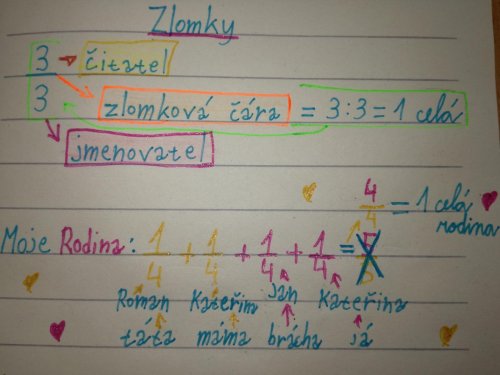 Zlomky
3 → čitatel
3 zlomková čára = 3:3 = 1 celá
jmenovatel
4/4 = 1 celá rodina
Moje Rodina: 1/4 + 1/4 + 1/4 + 1/4 =
Roman Kateřin Jan Kateřina
táta máma brácha já